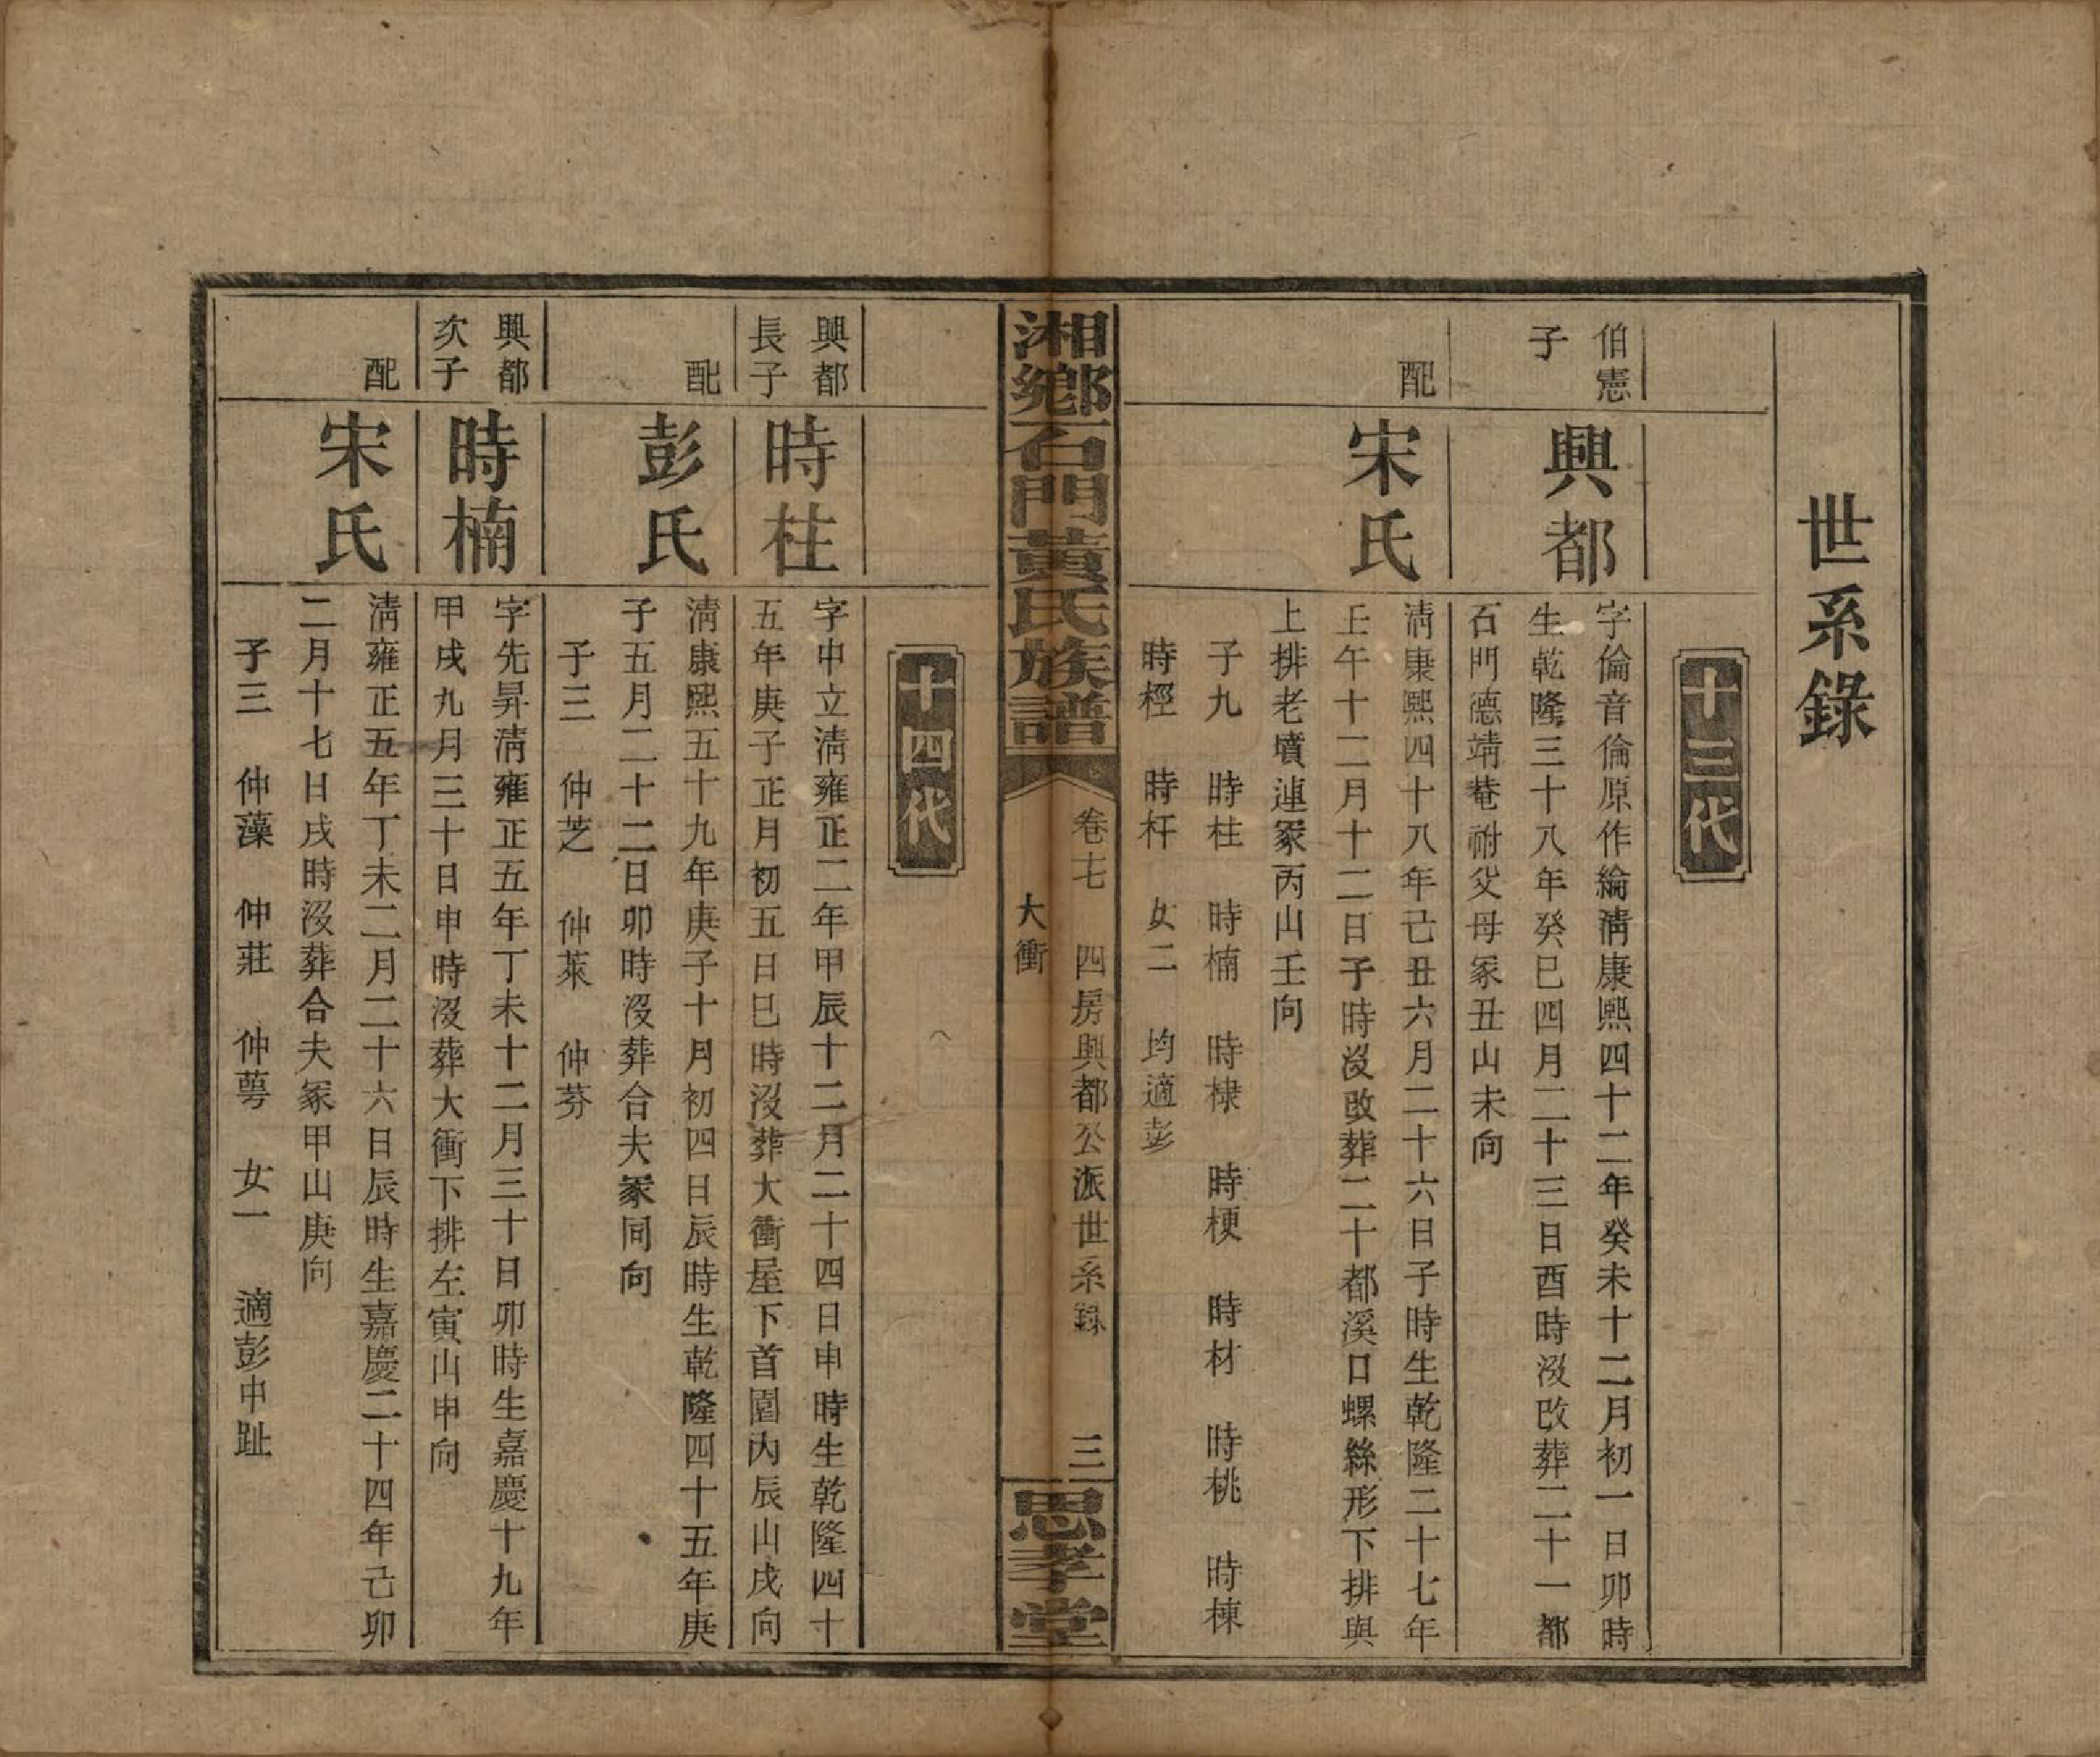 世系錄
十三代
伯憲
子
興都
字倫音倫原作綸淸康熙四十二年癸未十二月初一日卯時
生乾隆三十八年癸巳四月二十三日酉時沒改葬二十一都
石門德靖菴祔父母冢丑山未向
配
宋氏
淸康熙四十八年己丑六月二十六日子時生乾隆二十七年
壬午十二月十二日子時沒改葬二十都溪口螺絲形下排與
上排老墳連冢丙山壬向
子九 時柱 時楠 時棣 時梗 時材 時桃 時棟
時桱 時杆 女二 均適彭
湘鄉石門黃氏族譜
卷七 四房興都公派世系錄 三
大衝
思孝堂
十四代
興都
長子
時柱
字中立淸雍正二年甲辰十二月二十四日申時生乾隆四十
五年庚子正月初五日巳時沒葬大衝屋下首園內辰山戌向
配
彭氏
淸康熙五十九年庚子十月初四日辰時生乾隆四十五年庚
子五月二十二日卯時沒葬合夫冢同向
子三 仲芝 仲萊 仲芬
興都
次子
時楠
字先昇淸雍正五年丁未十二月三十日卯時生嘉慶十九年
甲戌九月三十日申時沒葬大衝下排左寅山申向
配
宋氏
淸雍正五年丁未二月二十六日辰時生嘉慶二十四年己卯
二月十七日戌時沒葬合夫冢甲山庚向
子三 仲藻 仲莊 仲萼 女一 適彭中趾